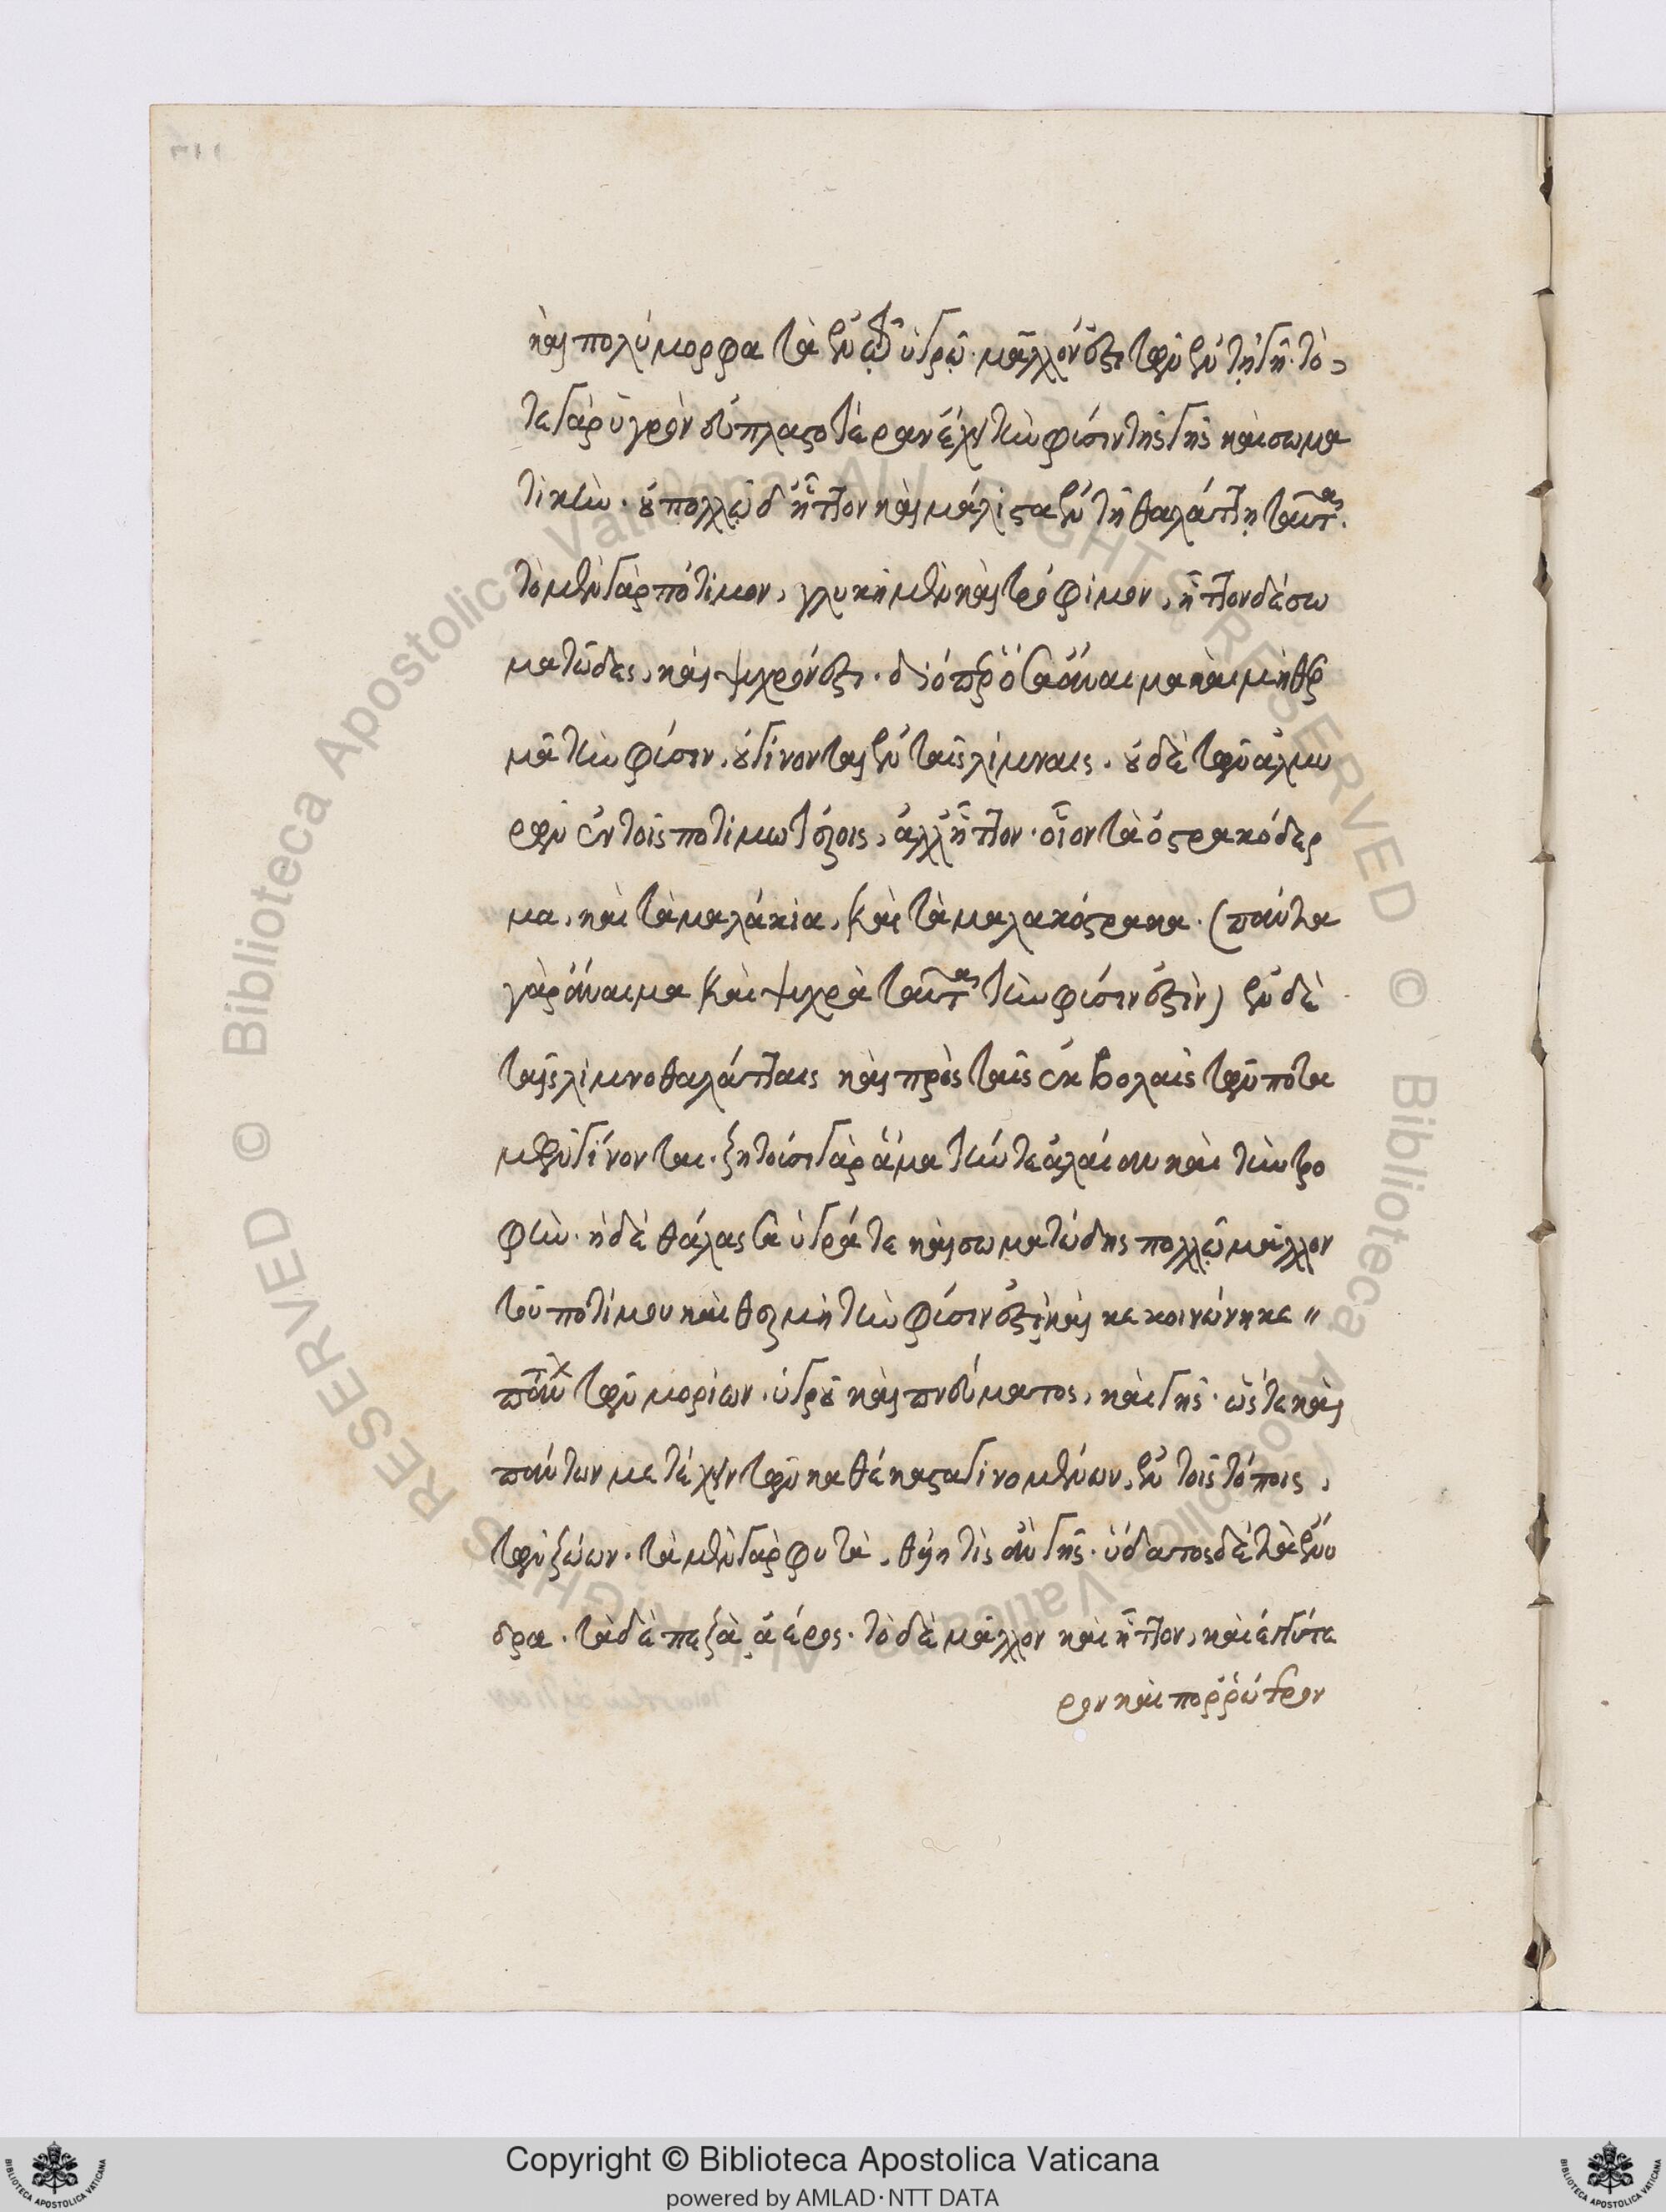 καὶ πολύμορφα τὰ ἐν τῷ ὑγρῷ. μᾶλλόν ἐστι τῶν ἐν τῇ γῇ. τό-
τε γὰρ ὑγρὸν εὐπλαστοτέραν ἔχει τὴν φύσιν τῆς γῆς καὶ σωμα
τικὴν. οὐ πολλῷ δ' ἧττον καὶ μάλιστα ἐν τῇ θαλάττῃ ταῦτα.
τὸ μὲν γὰρ πότιμον, γλυκὴ μὲν καὶ τρόφιμον, ἧττον δὲ σω
ματῶδες, καὶ ψυχρόν ἐστι. διόπερ ὅσα ἄναιμα καὶ μὴ θερ
μὰ τὴν φύσιν, οὐ γίνονται ἐν ταῖς λίμναις. οὐδὲ τῶν ἁλμυ
ρῶν ἐν τοῖς ποτιμωτέροις, ἀλλ' ἧττον. οἷον τὰ ὀστρακόδερ
μα, καὶ τὰ μαλάκια, καὶ τὰ μαλακόστρακα. (πάντα
γὰρ ἄναιμα καὶ ψυχρὰ ταῦτα τὴν φύσιν ἐστὶν) ἐν δὲ
ταῖς λιμνοθαλάτταις καὶ πρὸς ταῖς ἐκβολαῖς τῶν ποτα
μῶν γίνονται. ζητοῦσι γὰρ ἅμα τήν τε ἀλέαν καὶ τὴν τρο
φὴν. ἡ δὲ θάλασσα ὑγρά τε καὶ σωματώδης πολλῷ μᾶλλον
τοῦ ποτίμου καὶ θερμὴ τὴν φύσιν ἐστὶ καὶ κεκοινώνηκε
πάντων τῶν μορίων, ὑγροῦ καὶ πνεύματος, καὶ γῆς. ὥστε καὶ
πάντων μετέχειν τῶν καθέκαστα γινομένων, ἐν τοῖς τόποις,
τῶν ζώων. τὰ μὲν γὰρ φυτὰ, θείη τις ἂν γῆς. ὕδατος δὲ τὰ ἔνυ
δρα. τὰ δὲ πεζὰ, ἀέρος. τὸ δὲ μᾶλλον καὶ ἧττον, καὶ ἐγγύτε
ρον καὶ πορρώτερον
Copyright © Biblioteca Apostolica Vaticana
powered by AMLAD·NTT DATA